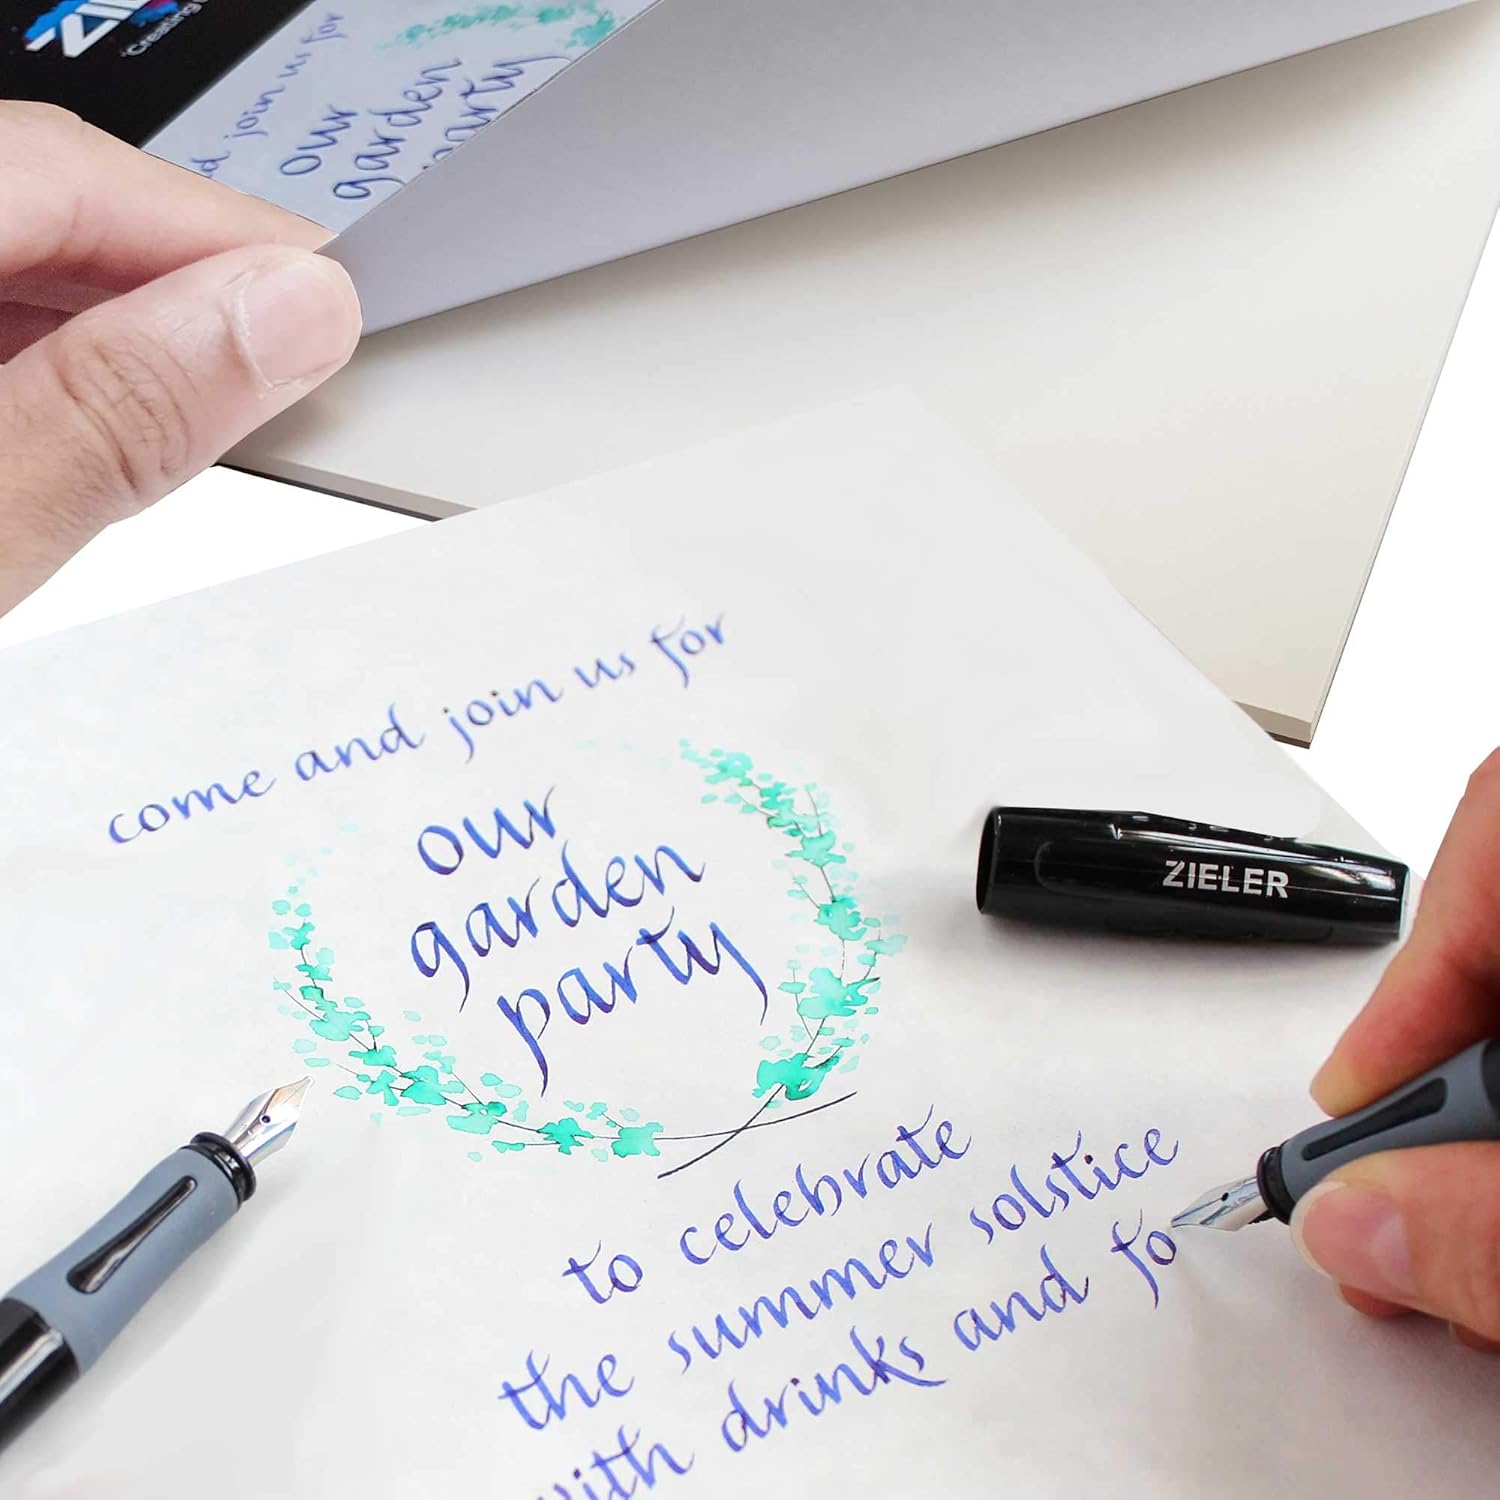 join us for
our
garden
party
come and join us for
our
garden
party
ZIELER
to celebrate
the summer solstice
with drinks and fo